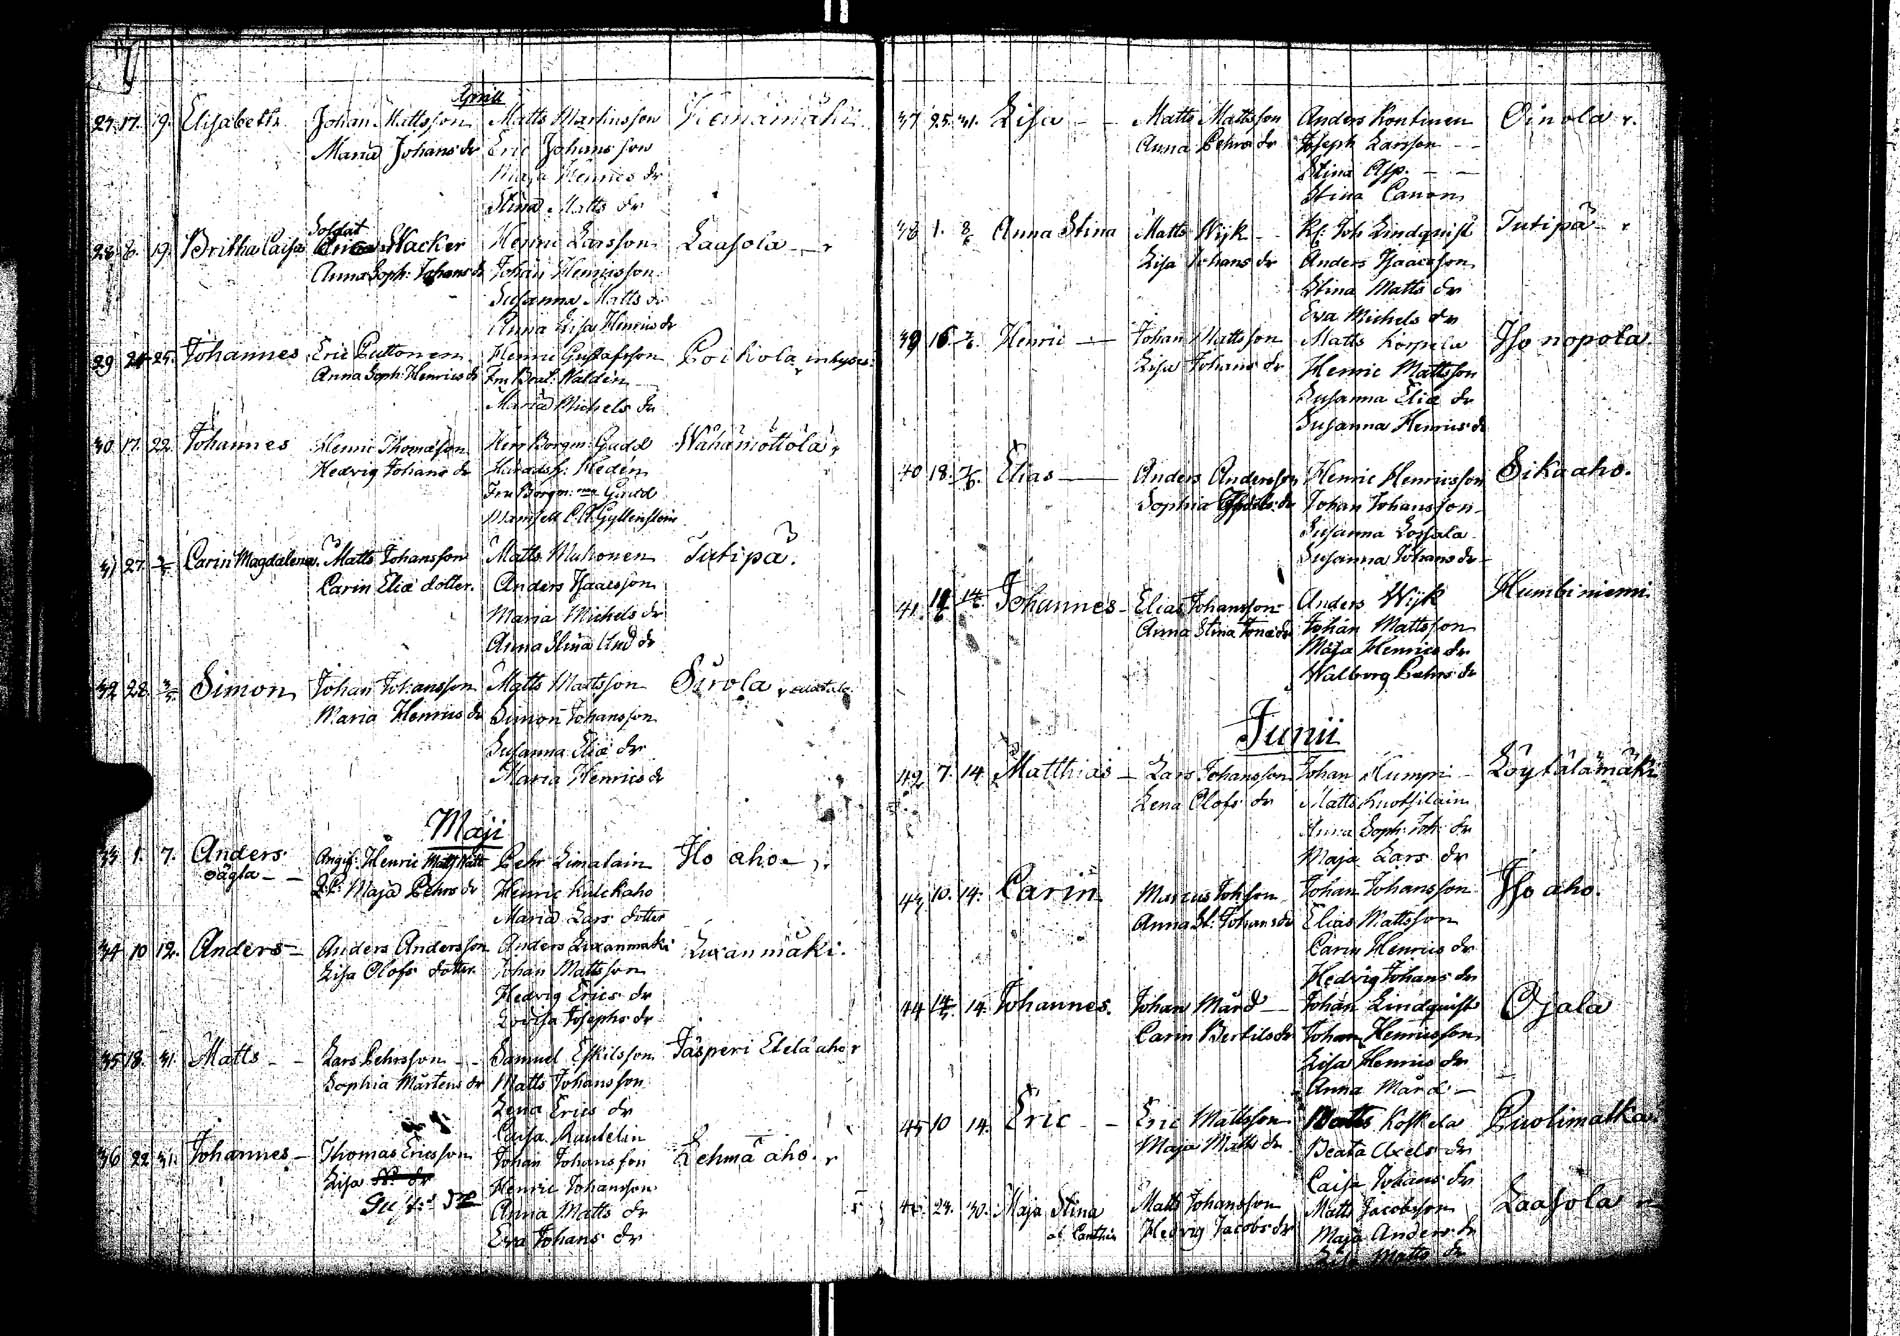 Aprill
27. 17. 19. Elisabeth Johan Mattsson Matts Martinsson Heinämäki
Maria Johans dr Eric Johansson
Maja Henrics dr
Stina Matts dr
Soldat
28. 8. 19. Britha Caisa Wacker Henric Larsson Laasola r
Anna Soph: Johans dr Johan Henricsson
Susanna Matts dr
Anna Lisa Henrics dr
29 24 25. Johannes Eric Puttonen Henric Gustafsson Poikola inhyses
Anna Soph: Henrics dr Fru Walden
Maria Michels dr
30. 17. 22. Johannes Henric Thomasson Herr Borgm: Gadd Wähämöttölä r
Hedvig Johans dr Häradsh: Heden
Fru Borgm: Gadd
Mamsell C. A. Gyllenstoin
31 27. 3/5 Carin Magdalena Matts Johansson Matts Muhonen Jutipä.
Carin Eliæ dotter. Anders Isaacsson
Maria Michels dr
Anna Stina Lind dr
32 28. 3/5 Simon Johan Johansson Matts Mattsson Sirola
Maria Henrics dr Simon Johansson
Susanna Eliæ dr
Maria Henrics dr
Maji
33 1. 7. Anders Henric Pehr Limatain Iso aho r
oägta Maja Pehrs dr Henric Kulekaho
Maria Lars dotter
34 10 12. Anders Anders Andersson Anders Luxanmäki Luxanmäki.
Lisa Olofs dotter Johan Mattsson
Hedvig Erics dr
Lovisa Josephs dr
35 18. 31. Matts Lars Pehrsson Samuel Eskilsson Jasperi Etelä aho r
Sophia Mårtens dr Matts Johansson
Lena Erics dr
Caisa Rautelin
36 22 31. Johannes Thomas Ericsson Johan Johansson Lehmä aho. r
Lisa Henric Johansson
Anna Matts dr
Eva Johans dr
37 25. 31. Lisa Matts Mattsson Anders Kontinen Oinola r.
Anna Pehrs dr Joseph Larsson
Stina Asp.
Stina Canon
38 1. 8/6 Anna Stina Matts Wijk Joh Lindquist Jutipä r
Lisa Johans dr Anders Isaacsson
Stina Matts dr
Eva Michels dr
39 16. 7/6. Henric Johan Mattsson Matts Korpela Iso nopola
Lisa Johans dr Henric Mattsson
Susanna Eliæ dr
Susanna Henrics dr
40 18. 7/6. Elias Anders Andersson Henric Henricsson Sikaaho.
Sophia Johan Johansson
Susanna Lossala
Susanna Johans dr
41. 14/6 Johannes Elias Johansson Anders Wijk Humbiniemi
Anna Stina Jonæ dr Johan Mattsson
Maja Henrics dr
Walborg Pehrs dr
Junii
42 7. 14 Matthias Lars Johansson Johan Humpi Löytälämäki
Lena Olofs dr Matts Kuotsilain
Anna Soph: Joh: dr
Maja Lars dr
43 10. 14. Carin Marcus Johsson Johan Johansson Iso aho.
Anna St: Johans dr Elias Mattsson
Carin Henrics dr
Hedvig Johans dr
44 14. Johannes. Johan Mård Johan Lindquist Ojala
Carin Bertils dr Johan Henricsson
Lisa Henrics dr
Anna Mård
45 10 14. Eric Eric Mattsson Matts Koskela Puolimatka
Maja Matts dr Beata Axels dr
Caisa Johans dr
46. 23. 30. Maja Stina Matts Johansson Matts Jacobsson Laasola
Hedvig Jacobs dr Maja Anders dr
Lisa Matts dr